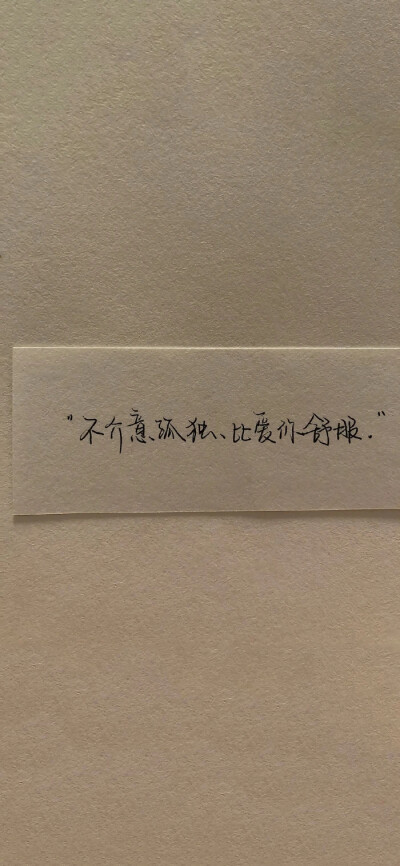 "不介意孤独、比爱你舒服."